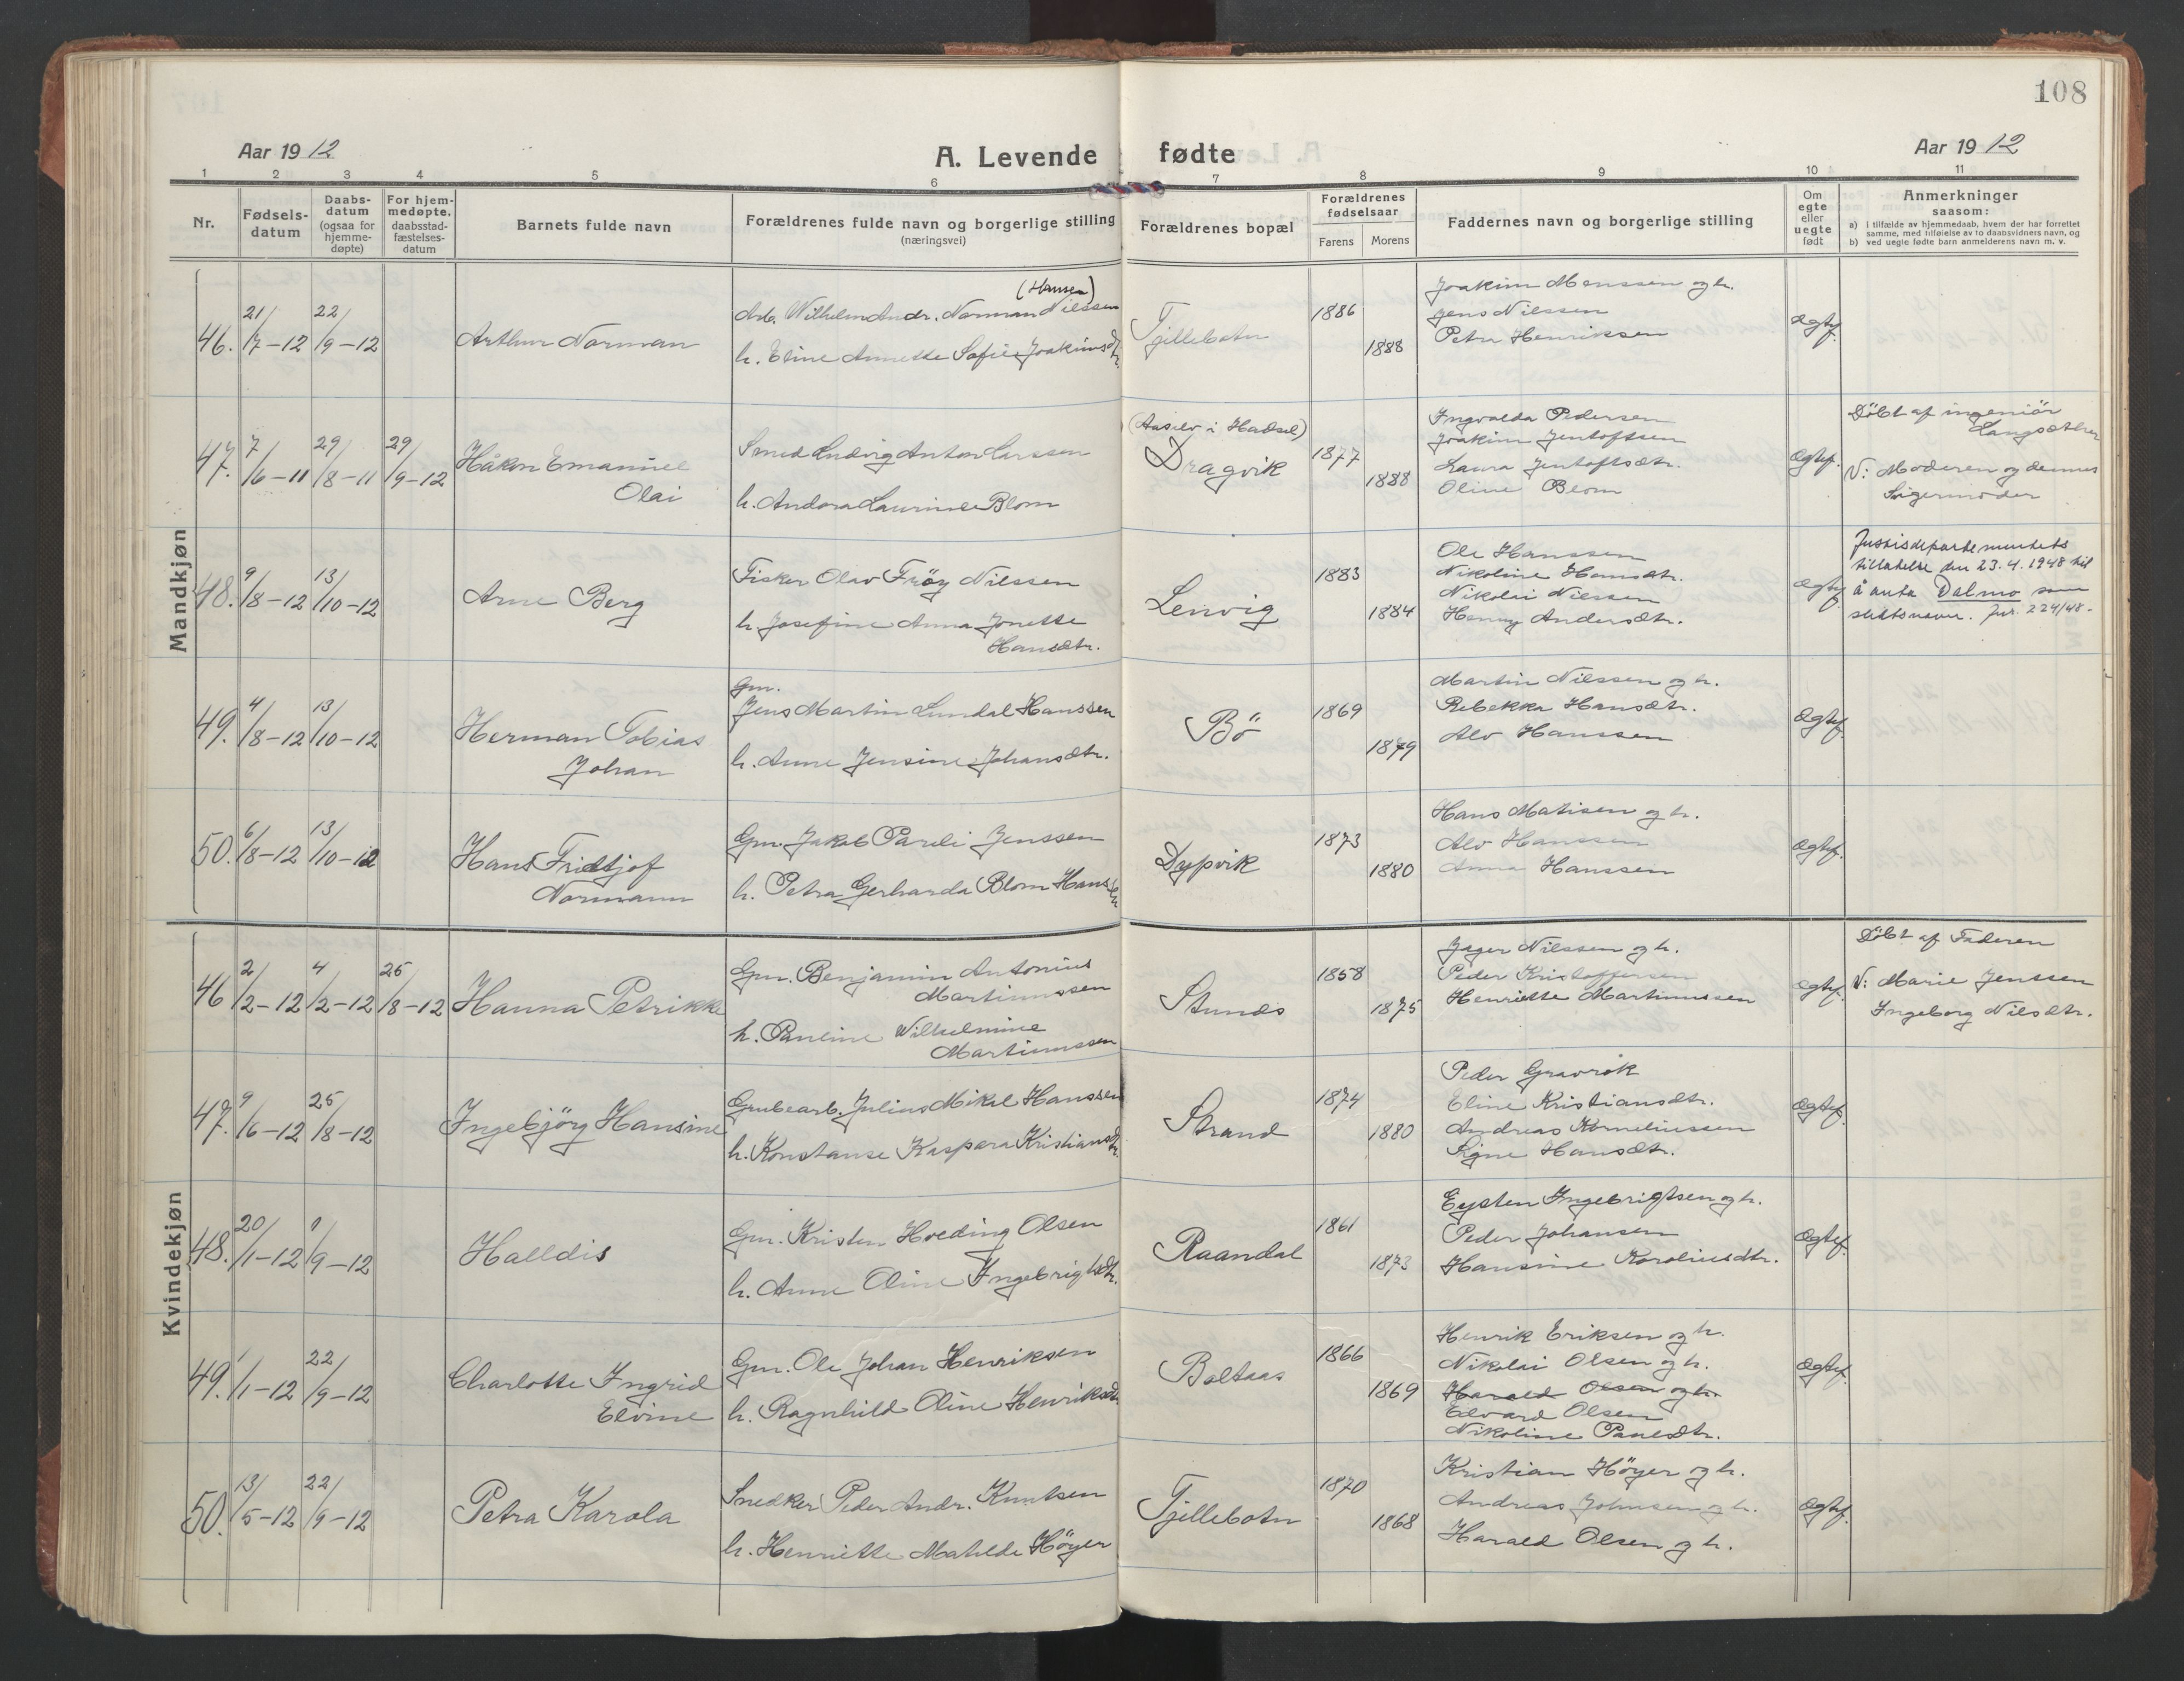 108
Aar 1912
A. Levende fødte
Aar 1912
1 2 3 4 5 6 7 8 9 10 11
Nr.
Fødsels-
datum
Daabs-
datum
(ogsaa for
hjemme-
døpte)
For hjem-
medøpte,
daabsstad-
fæstelses-
datum
Barnets fulde navn
Forældrenes fulde navn og borgerlige stilling
(næringsvei)
Forældrenes bopæl
Forældrenes
fødselsaar
Farens Morens
Faddernes navn og borgerlige stilling
Om
egte
eller
uegte
født
Anmerkninger
saasom:
a) i tilfælde av hjemmedaab, hvem der har forrettet
samme, med tilføielse av to daabsvidners navn, og
b) ved uegte fødte barn anmelderens navn m. v.
Mandkjøn
46. 21/7-12 22/9-12
Arthur Norman
(Hansen)
Arb. Wilhelm Andr. Norman Nilssen
h. Eline Annette Sofie Joakimsdtr.
Tjillebotn
1886
1888
Joakim Monssen og h.
Jens Nilssen
Petra Henriksen
ægtef.
47. 7/6-11 29/8-11 29/9-12
Håkon Emanuel
Olai
Smed Ludvig Anton Larssen
h. Andora Laurine Blom
(Aaselv i Hadsel)
Dragvik
1877
1888
Ingvalda Pedersen
Joakim Jentoftsen
Laura Jentoftsdtr.
Oline Blom
ægtef.
Döbt af ingeniör
Langsæther
V: Moderen og dennes
Svigermoder
48. 9/8-12 13/10-12
Arne Berg
Fisker Olav Fröy Nilssen
h. Josefine Anna Jonette
Hansdtr.
Lenvig
1883
1884
Ole Hanssen
Nikoline Hansdtr.
Nikolai Nilssen
Henny Andersdtr.
ægtef.
Justisdepartementets
tillatelse den 23.4.1948 til
å anta Dalmo som
slektsnavn. Jnr. 224/48.
49. 4/8-12 13/10-12
Herman Tobias
Johan
Gm.
Jens Martin Lundal Hanssen
h. Anne Jensine Johansdtr.
Bö
1869
1879
Martin Nilssen og h.
Rebekka Hansdtr.
Alv Hanssen
ægtef.
50. 6/8-12 13/10-12
Hans Fridtjof
Normann
Gm. Jakob Pareli Jenssen
h. Petra Gerharda Blom Hanssen
Dypvik
1873
1880
Hans Matisen og h.
Alv Hanssen
Anna Hanssen
ægtef.
Kvindekjøn
46 2/2-12 4/2-12 25/8-12
Hanna Petrikke
Gm. Benjamin Antonius
Martinussen
h. Pauline Wilhelmine
Martinussen
Stunds
1858
1875
Jager Nilssen og h.
Peder Kristoffersen
Henriette Martinussen
ægtef.
Döbt af Faderen
V: Marie Jenssen
Ingeborg Nilsdtr.
47. 9/6-12 25/8-12
Ingebjörg Hansine
Grubearb. Julius Mikal Hanssen
h. Konstanse Kaspara Kristiansdtr.
Strand
1874
1880
Peder Gravrok
Eline Kristiansdtr.
Andreas Korneliussen
Signe Hansdtr.
ægtef.
48. 20/1-12 1/9-12
Halldis
Gm. Kristen Hveding Olsen
h. Anne Oline Ingebrigtsdtr.
Raandal
1861
1873
Eysten Ingebrigtsen og h.
Peder Johansen
Hansine Karoliusdtr.
ægtef.
49. 1/1-12 22/9-12
Charlotte Ingrid
Elvine
Gm. Ole Johan Henriksen
h. Ragnhild Oline Henriksdtr.
Boltaas
1866
1869
Henrik Eriksen og h.
Nikolai Olsen og h.
Harald Olsen og h.
Edvard Olsen
Nikoline Paulsdtr.
ægtef.
50. 13/5-12 22/9-12
Petra Karola
Snedker Peder Andr. Knutsen
h. Henriette Matilde Höyer
Tjillebotn
1870
1868
Kristian Höyer og h.
Andreas Johnsen og h.
Harald Olsen og h.
ægtef.